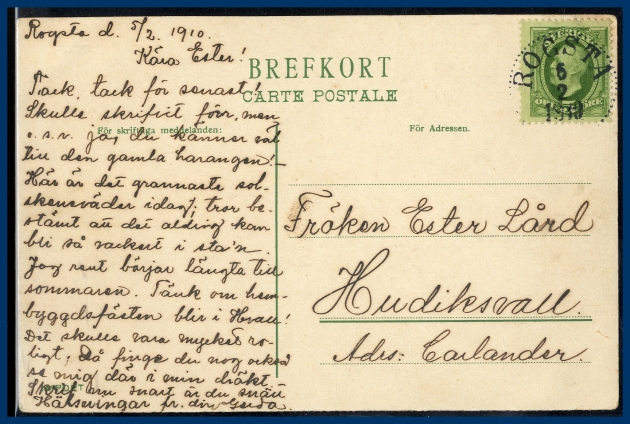 Rogsta d. 5/2. 1910.
Kära Ester!
BREFKORT
CARTE POSTALE
SVERIGE
ROGSTA
5
2
1910
Tack, tack för senast!
Skulle skrifvit förr, men
o.s.v. jag du känner väl
För skriftliga meddelanden:
För Adressen.
till den gamla harangen! –
Här är det grannaste sol-
skensväder idag, tror be-
stämt att det aldrig kan
bli så vackert i sta'n.
Jag rent börjar längta till
sommaren. Tänk om hem-
byggdsfästen blir i Hvall!
Det skulle vara mycket ro-
ligt, så finge du nog också
se mig där i min dräkt.
Skrif om snart är du snäll
Hälsningar fr. din Gerda.
Fröken Ester Lård
Hudiksvall.
Adr: Carlander.